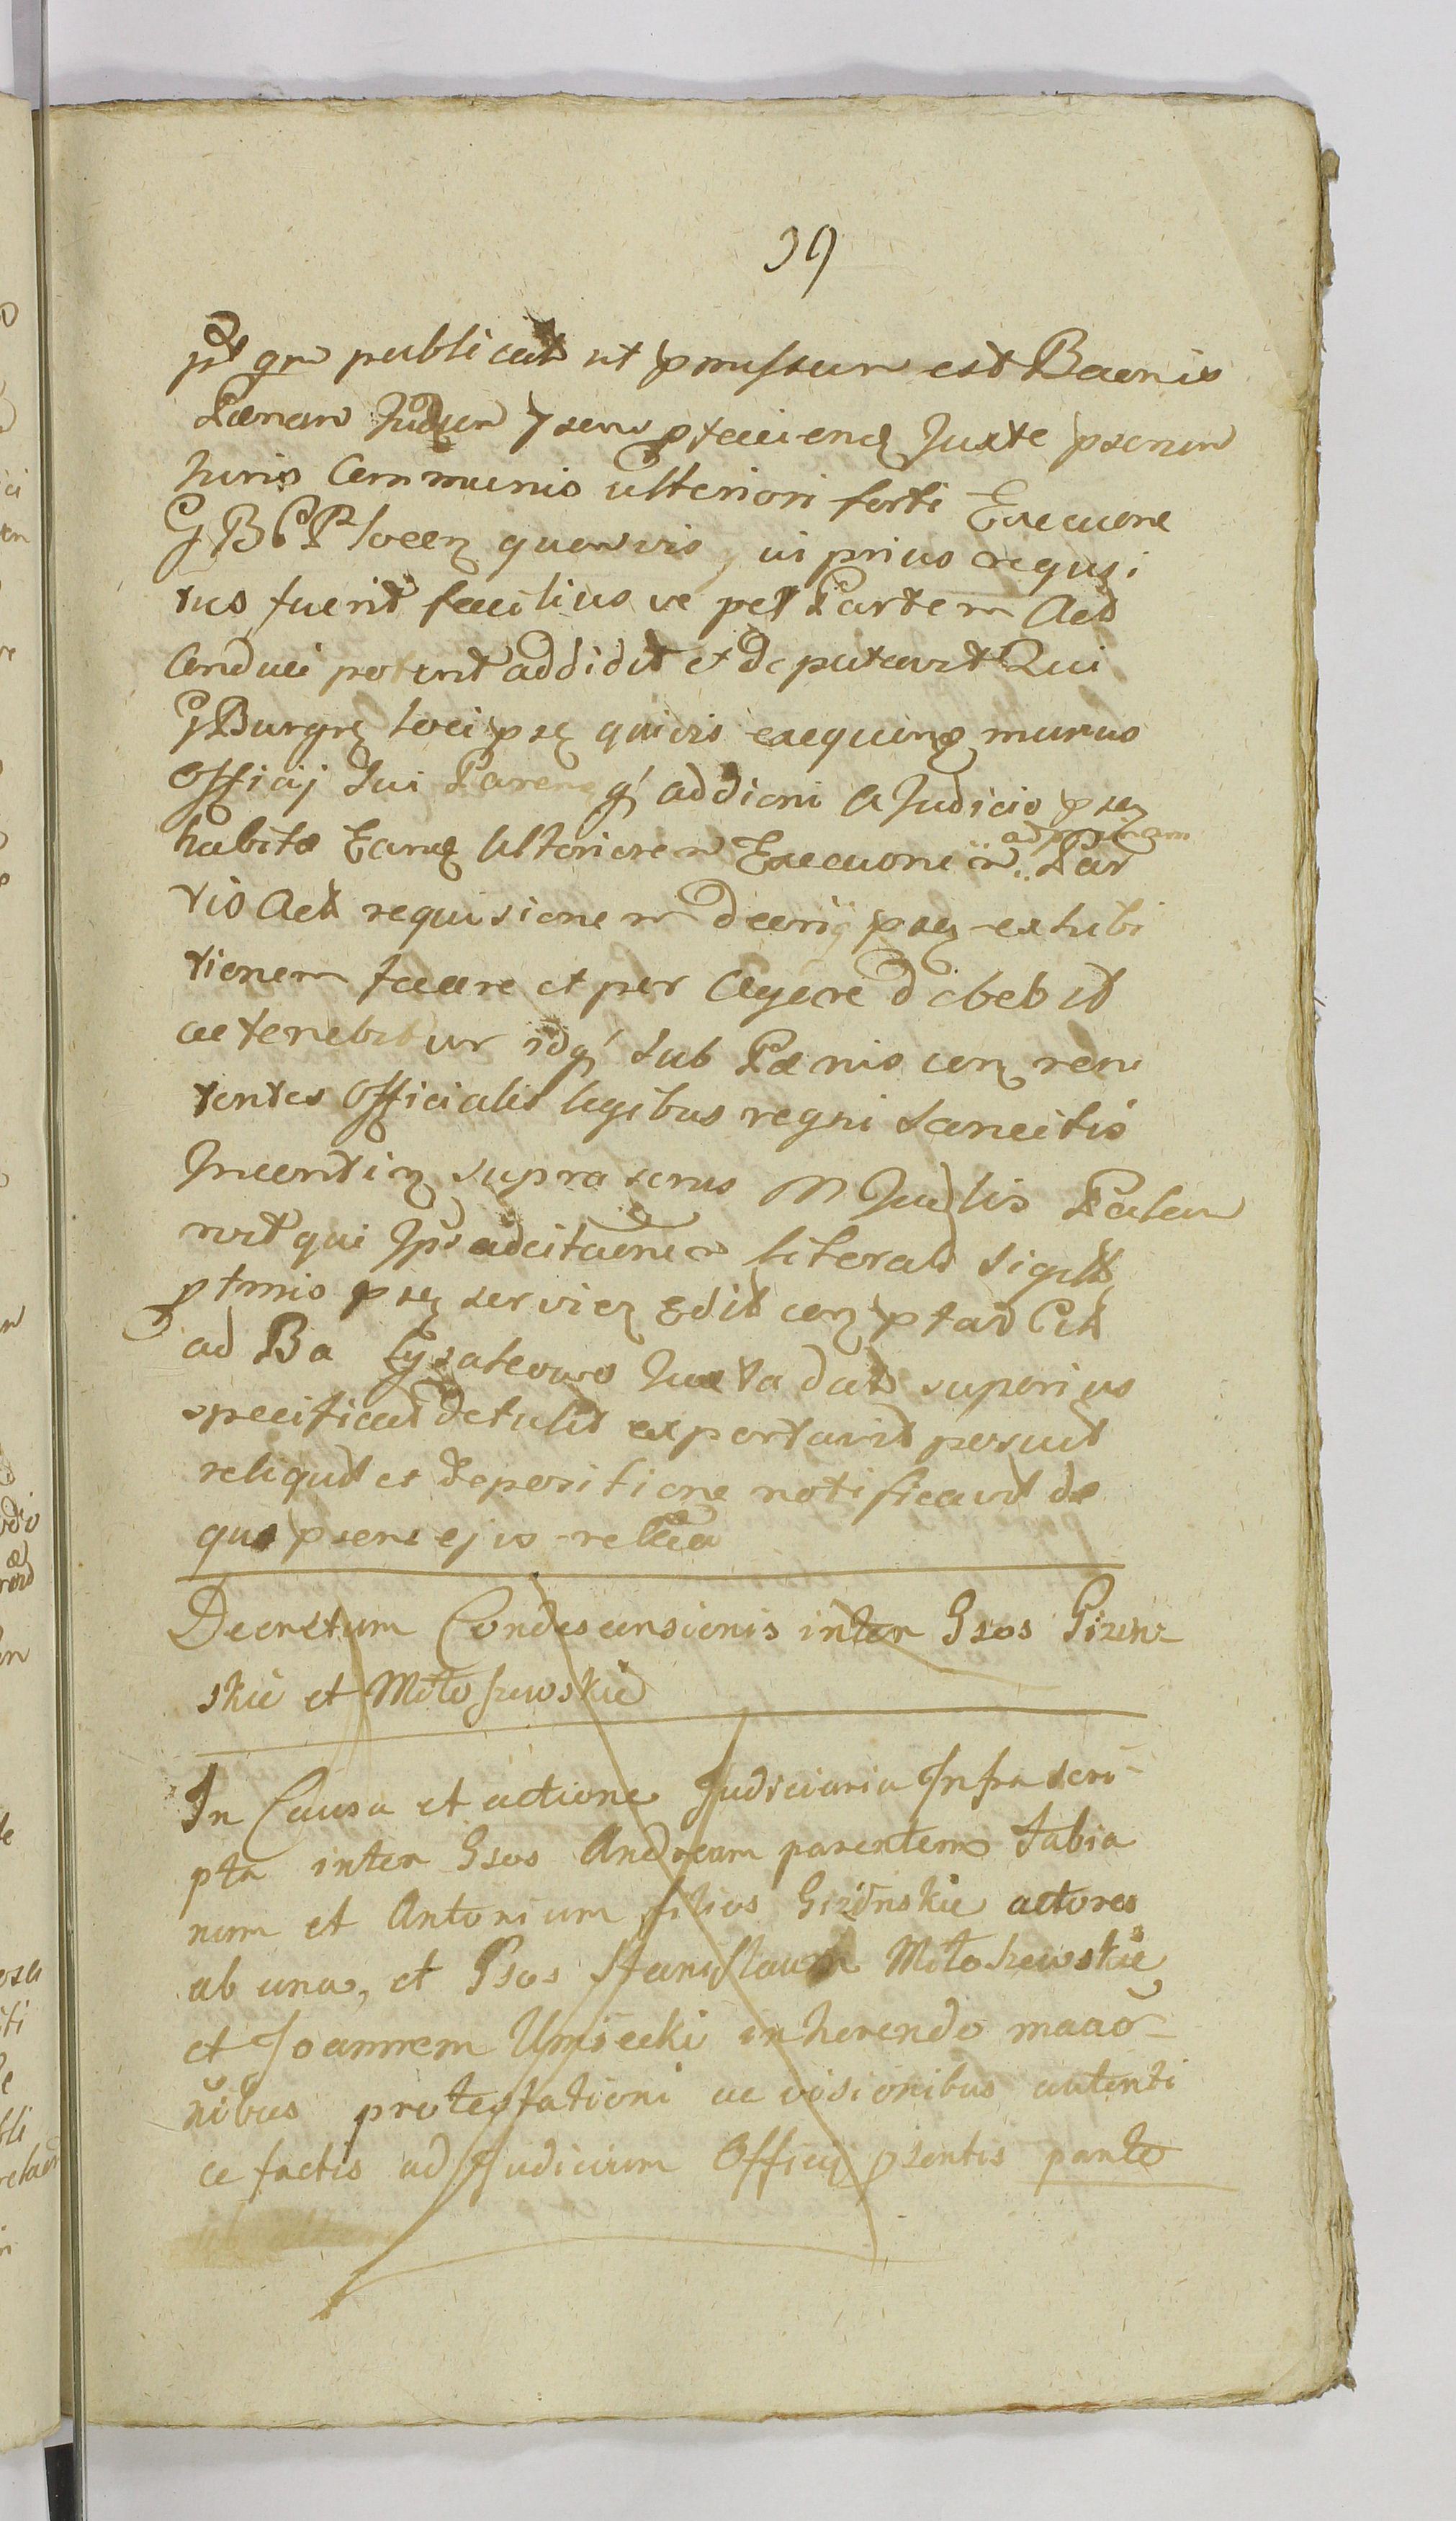 39
publicat ut pmissum est Baonis
Paenam Judum Juxta psenem
Juris Communis ulteriori forti Execuone
G B C P locen quemvis, ui prius requsi
tus fuerit facilius ve per Partem Act
Conduci poterit addidit et deputavit Qui
G Burgr loci psn quivis exequens munus
Officij sui Paren q addioni a Judicio psn
habitae Eamq Ulteriorem Execuonem ad ppriam Par
tis Act requisionem Decrij psn exhibi
tionem facere et per Agere debebit
ac tenebitur idq sub Paenis con reni
tentes Officiales legibus regni sancitis
Incontin supra scrus M Judlis Palam
nvit qui Ips adcitaonem literat sigilt
ptmis psn servien edit con ptad Cit
ad Ba Juxta dat superius
specificat detulit exportavit posuit
reliquit et depositione notificavit de
quo psens ejus relatio
Decretum Condescensionis inter Gsos Gizin-
skie et Miłoszewskie
In Causa et actione Judiciaria Infrascri-
pta inter Gsos Andream parentem Fabia
num et Antonium filios Gizinskie actores
ab una, et Gsos Stanislaum Miłoszewskie
et Joannem Umiecki inherendo maao-
nibus protestationi ac visionibus autenti
ce factis ad Judicium Officij psentis parte